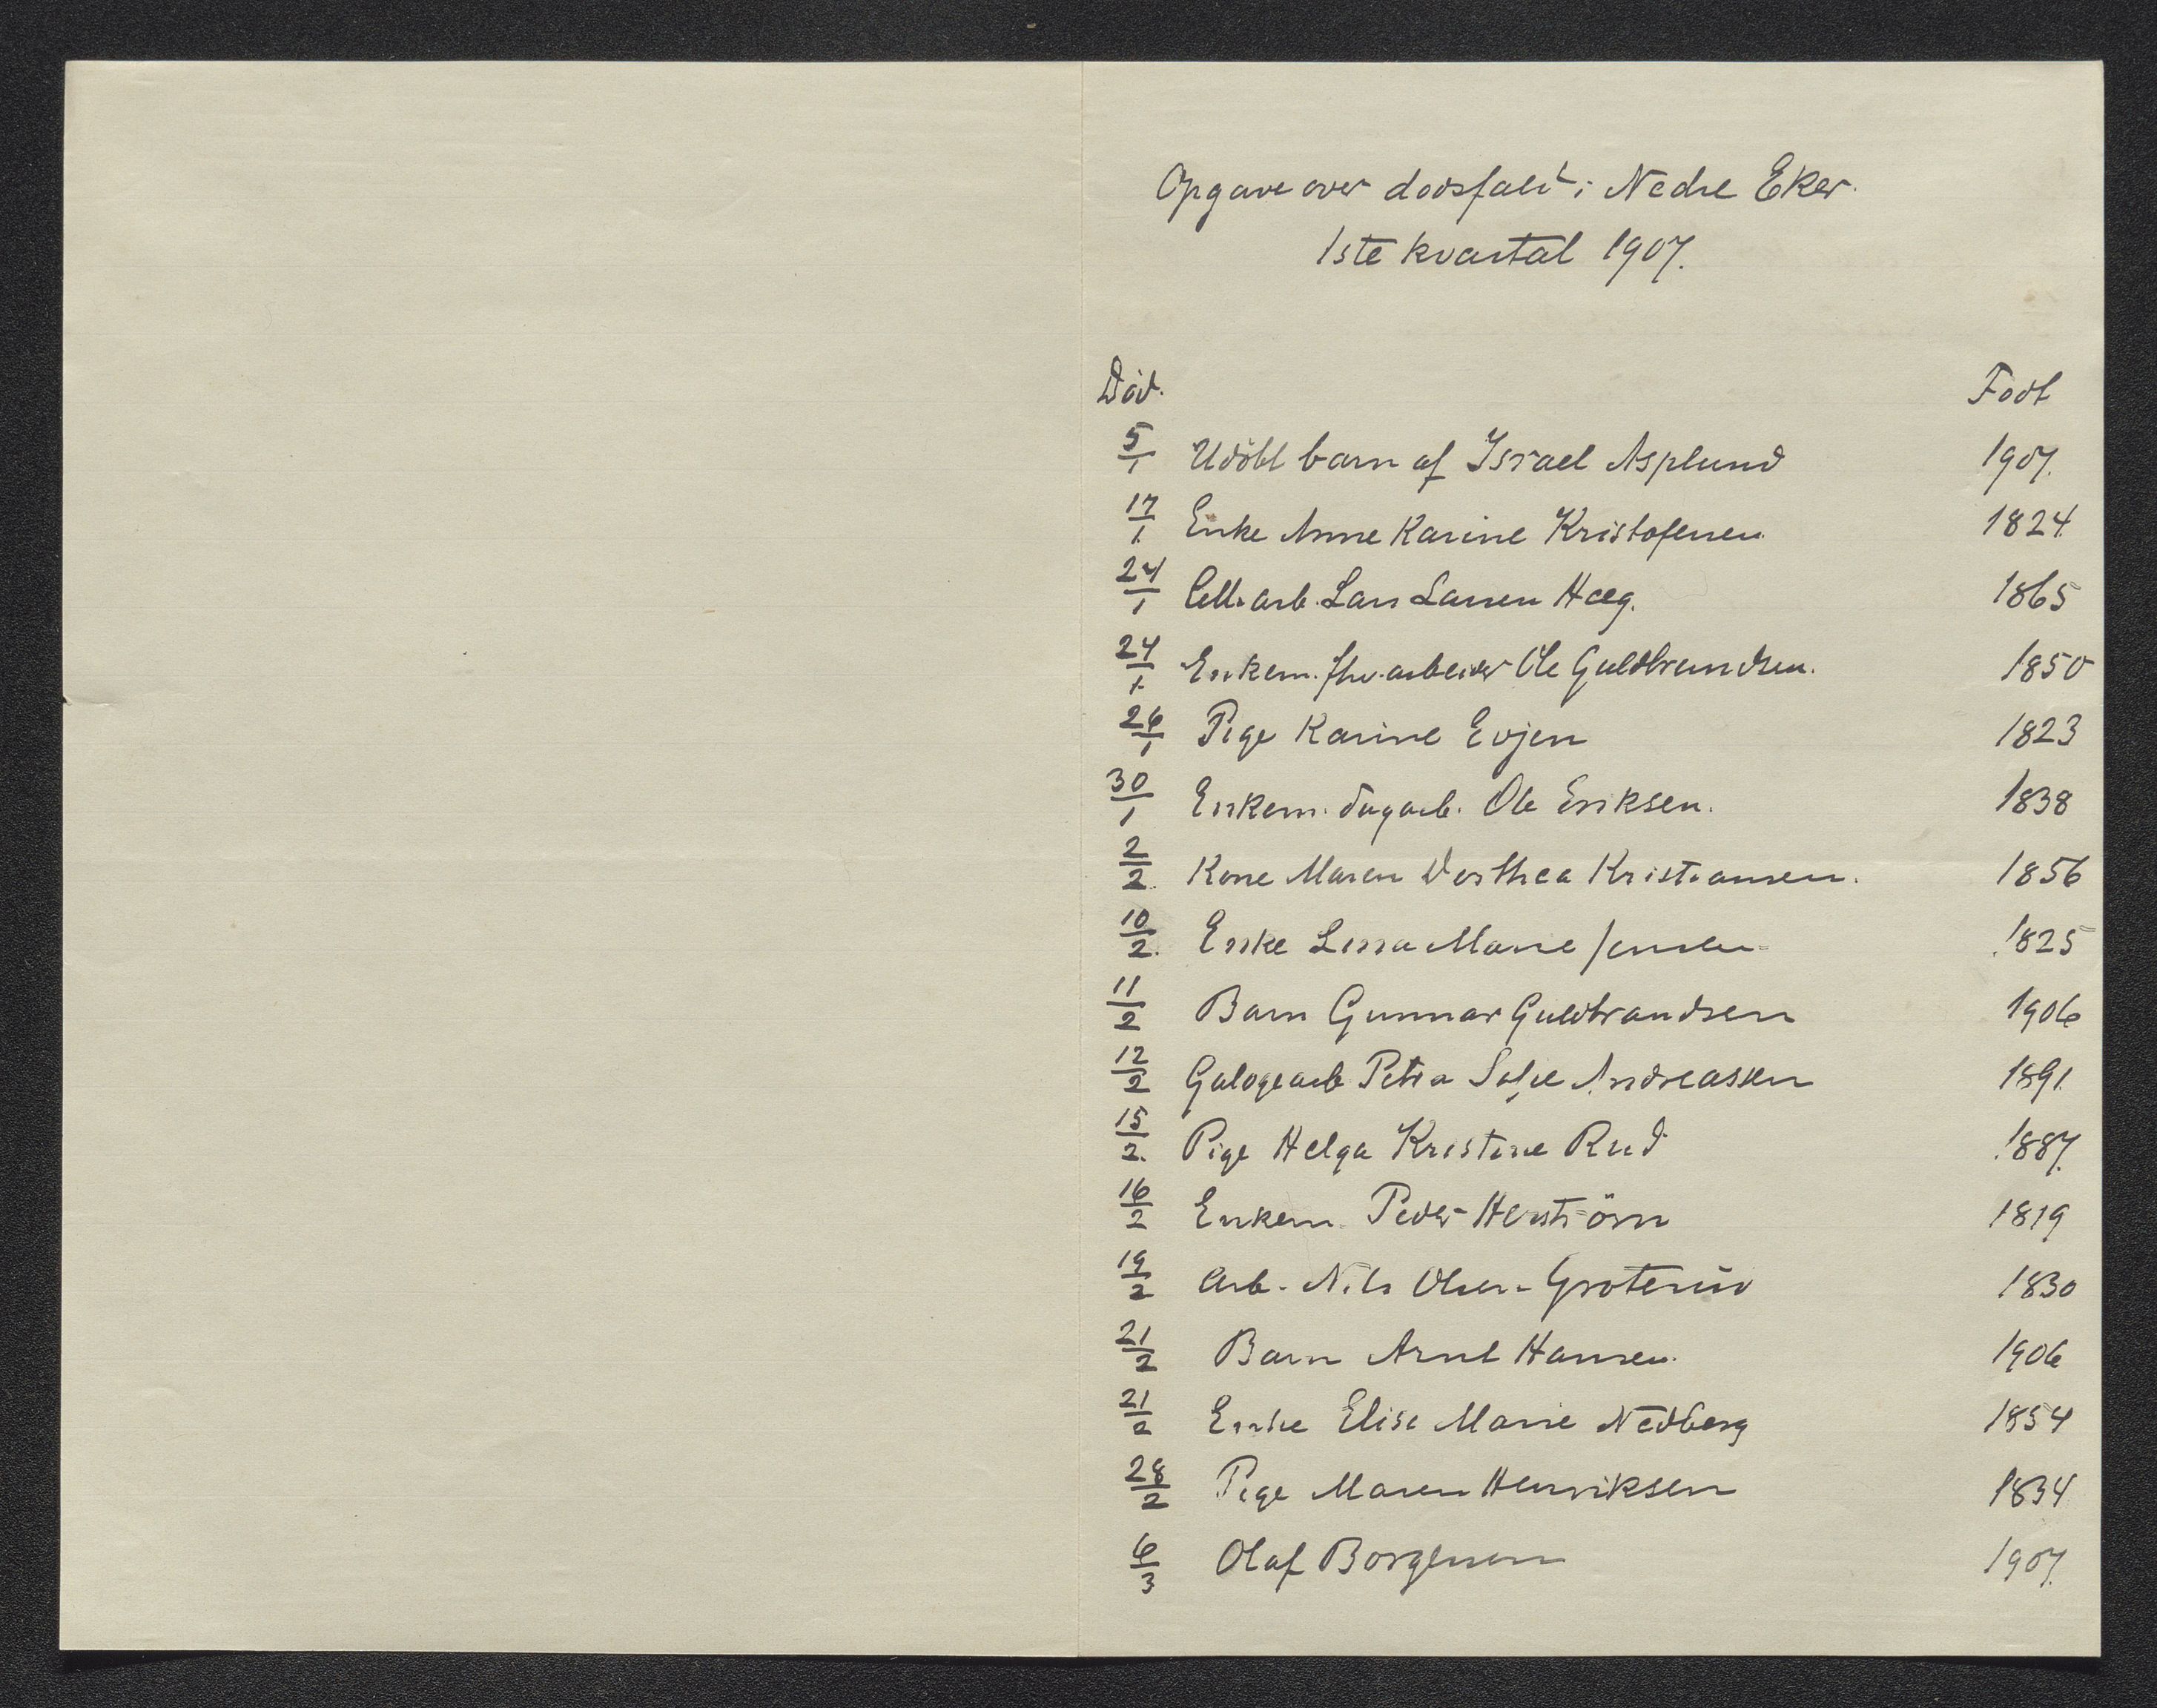 Opgave over dødsfald i Nedre Eker.
1ste kvartal 1907.
Død. Født
5/1 Udøbt barn af Israel Asplund 1907.
17/1 Enke Anne Karine Kristofersen 1824
24/1 Cell. arb. Lars Larsen Hæg. 1865
24/1 Enkem. arbeider Ole Guldbrandsen. 1850
26/1 Pige Karine Evjen 1823
30/1 Enkem. dagarb. Ole Eriksen. 1838
2/2 Kone Maren Dorthea Kristiansen. 1856
10/2 Enke Lina Marie Jensen 1825
11/2 Barn Gunnar Guldbrandsen 1906
12/2 Galogearb Petra Sofie Andreassen 1891
15/2 Pige Helga Kristine Rud 1887
16/2 Enkem. Peder Herström 1819
19/2 Arb. Nils Olsen Groterud 1830
21/2 Barn Arnt Hansen. 1906
21/2 Enke Elise Marie Nedberg 1854
28/2 Pige Maren Henriksen 1834
6/3 Olaf Borgersen 1907